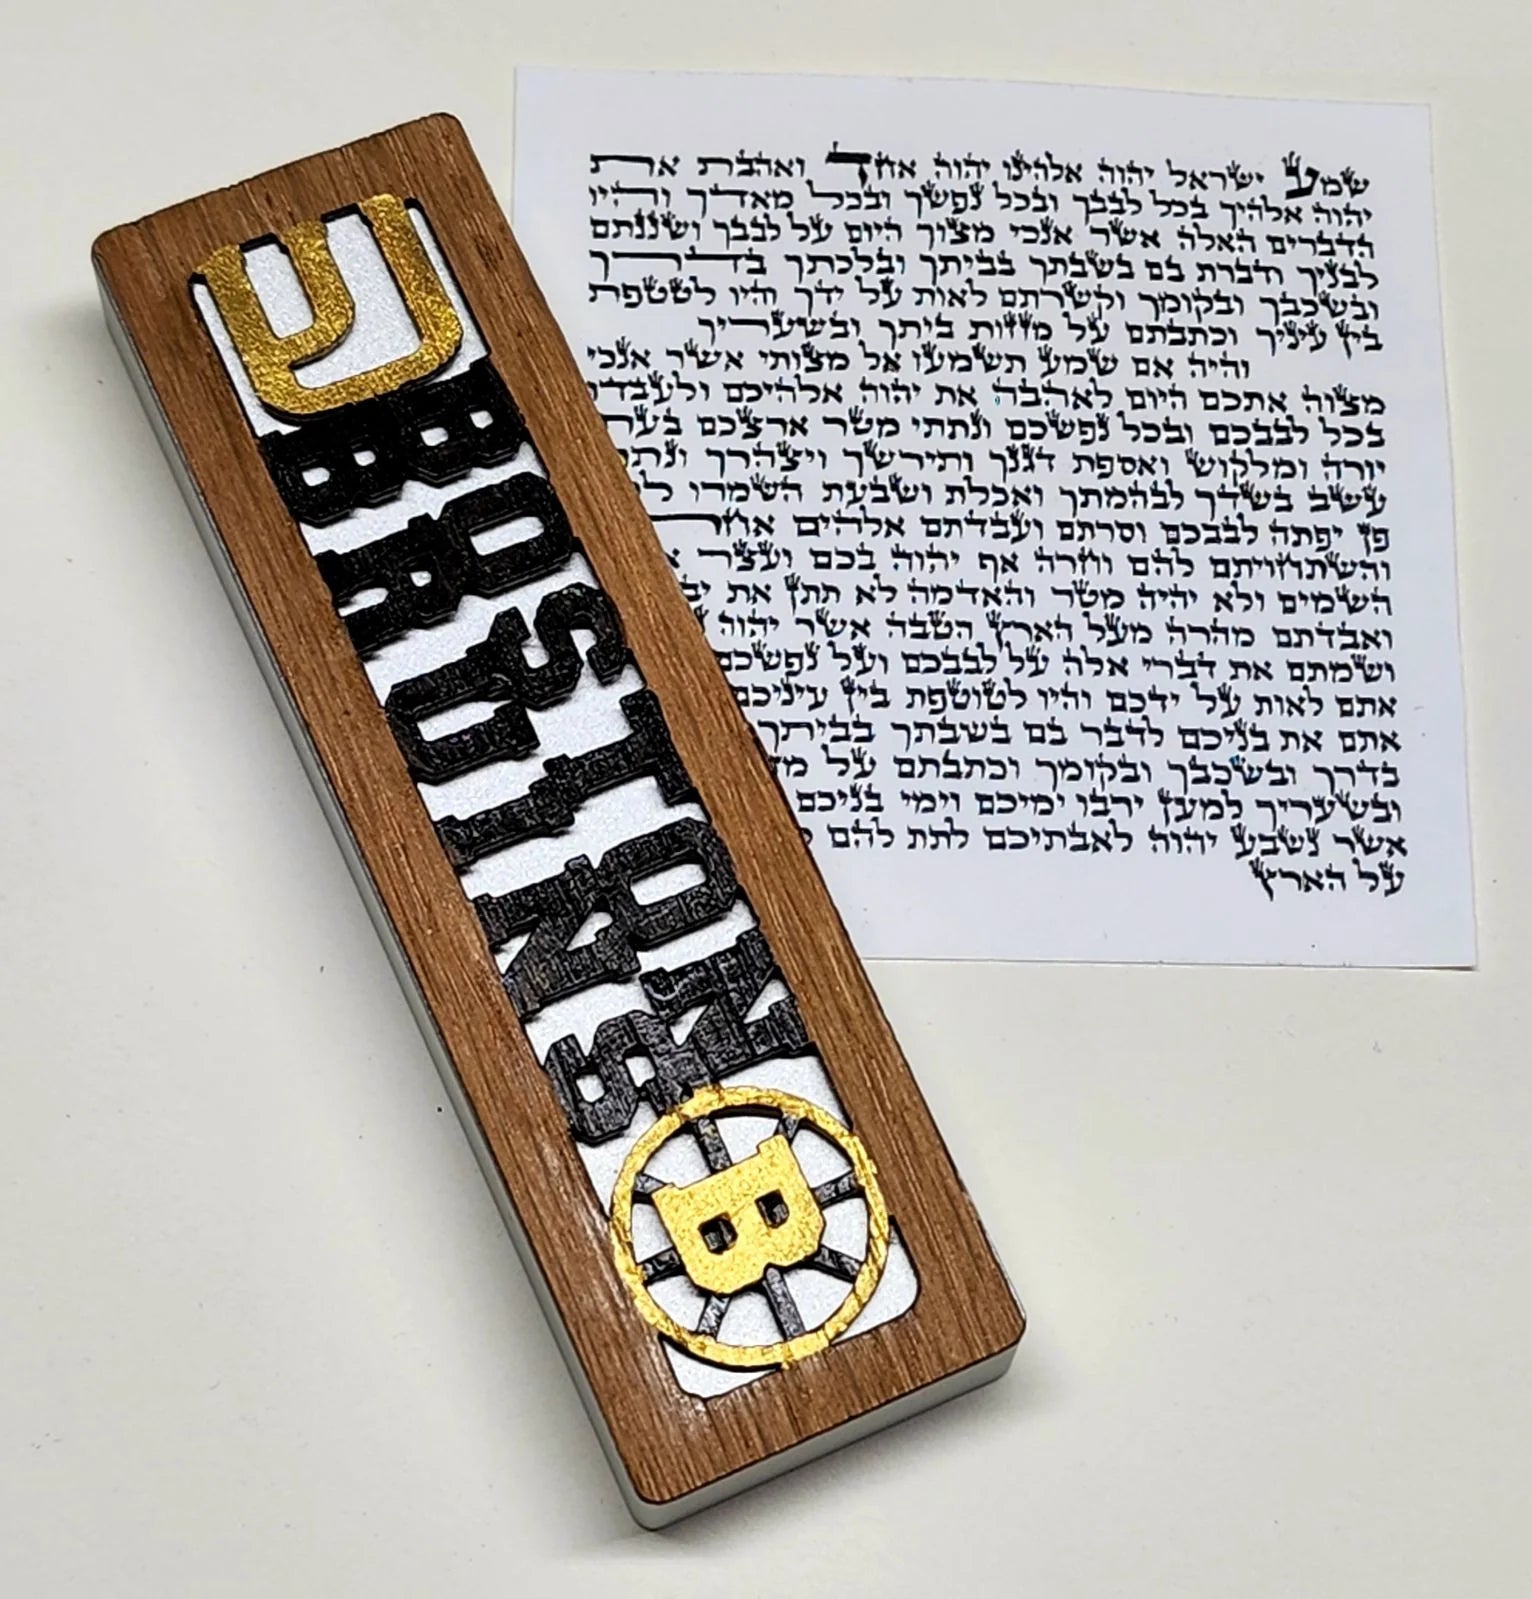 ש
BOSTON
BRUINS
B
שמע ישראל יהוה אלהינו יהוה אחד ואהבת את
יהוה אלהיך בכל לבבך ובכל נפשך ובכל מאדך והיו
הדברים האלה אשר אנכי מצוך היום על לבבך ושננתם
לבניך ודברת בם בשבתך בביתך ובלכתך בדרך
ובשכבך ובקומך וקשרתם לאות על ידך והיו לטטפת
בין עיניך וכתבתם על מזזות ביתך ובשעריך
והיה אם שמע תשמעו אל מצותי אשר אנכי
מצוה אתכם היום לאהבה את יהוה אלהיכם ולעבדו
בכל לבבכם ובכל נפשכם ונתתי מטר ארצכם
יורה ומלקוש ואספת דגנך ותירשך ויצהרך
עשב בשדך לבהמתך ואכלת ושבעת השמרו
פן יפתה לבבכם וסרתם ועבדתם אלהים
והשתחויתם להם וחרה אף יהוה בכם ועצר
השמים ולא יהיה מטר והאדמה לא תתן את
ואבדתם מהרה מעל הארץ הטבה אשר יהוה
ושמתם את דברי אלה על לבבכם ועל נפשכם
אתם לאות על ידכם והיו לטוטפת בין עיניכם
אתם את בניכם לדבר בם בשבתך בביתך
בדרך ובשכבך ובקומך וכתבתם על
ובשעריך למען ירבו ימיכם וימי בניכם
אשר נשבע יהוה לאבתיכם לתת להם
על הארץ